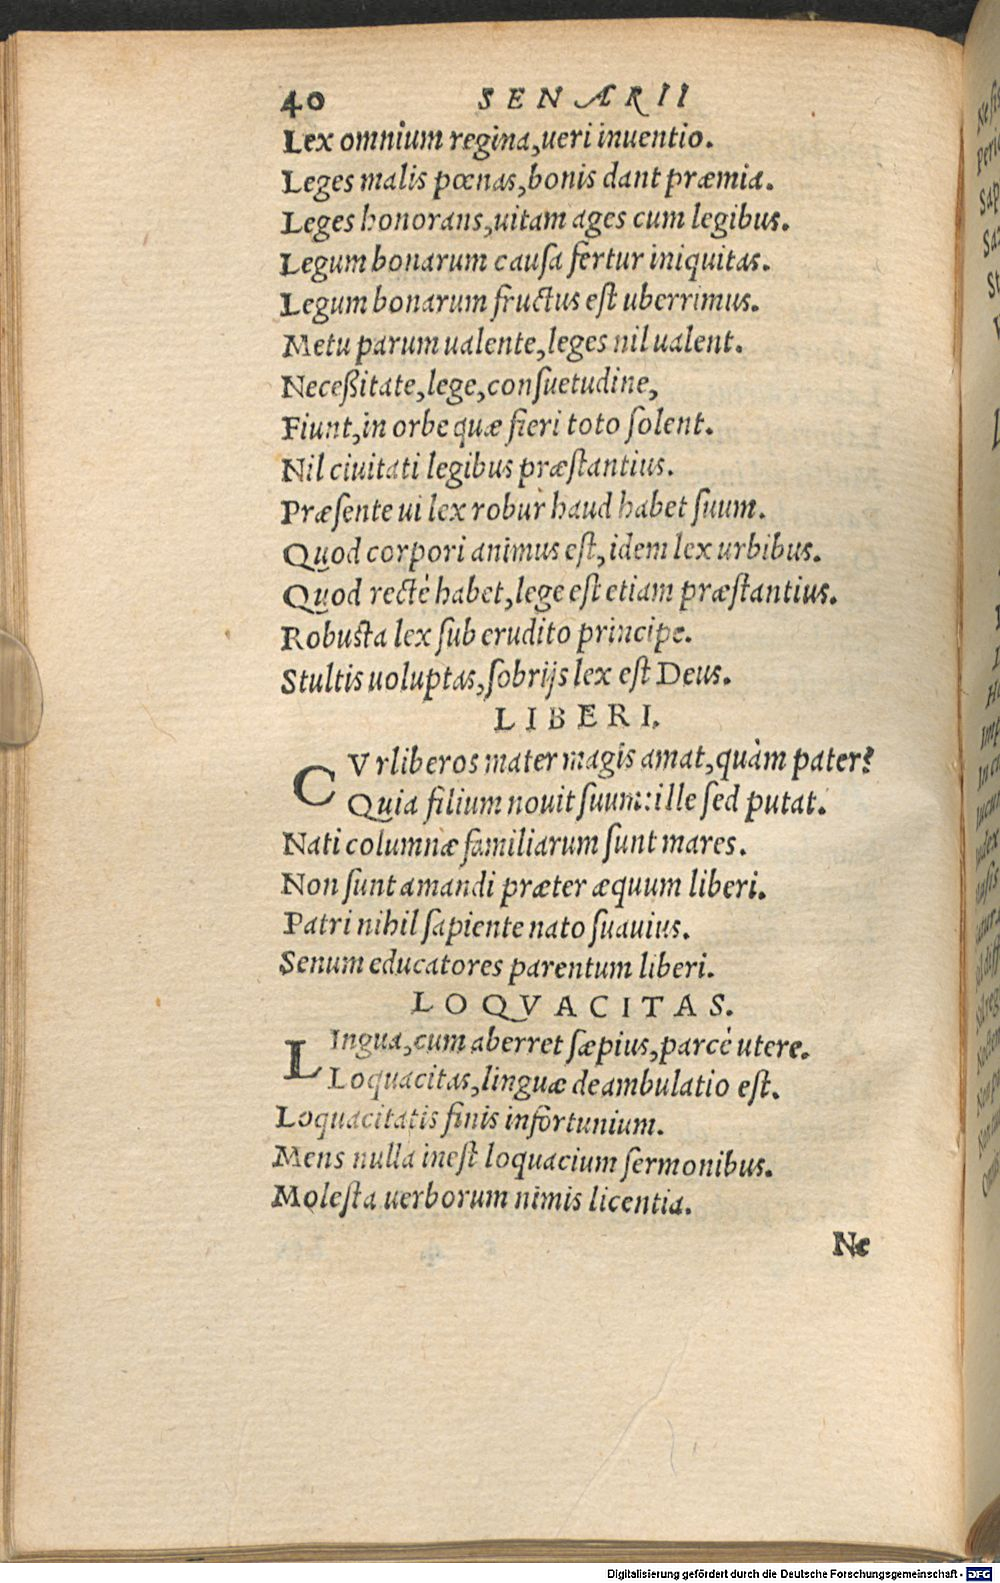 40 SENARII
Lex omnium regina, ueri inuentio.
Leges malis pœnas, bonis dant præmia.
Leges honorans, uitam ages cum legibus.
Legum bonarum cauſa fertur iniquitas.
Legum bonarum fructus eſt uberrimus.
Metu parum ualente, leges nil ualent.
Neceßitate, lege, conſuetudine,
Fiunt, in orbe quæ fieri toto ſolent.
Nil ciuitati legibus præſtantius.
Præſente ui lex robur haud habet ſuum.
Quod corpori animus eſt, idem lex urbibus.
Quod rectè habet, lege eſt etiam præſtantius.
Robuſta lex ſub erudito principe.
Stultis uoluptas, ſobrijs lex eſt Deus.
LIBERI.
CVr liberos mater magis amat, quàm pater?
Quia filium nouit ſuum: ille ſed putat.
Nati columnæ familiarum ſunt mares.
Non ſunt amandi præter æquum liberi.
Patri nihil ſapiente nato ſuauius.
Senum educatores parentum liberi.
LOQVACITAS.
LIngua, cum aberret ſæpius, parcè utere.
Loquacitas, linguæ deambulatio eſt.
Loquacitatis finis infortunium.
Mens nulla ineſt loquacium ſermonibus.
Moleſta uerborum nimis licentia.
Ne
Digitalisierung gefördert durch die Deutsche Forschungsgemeinschaft - DFG